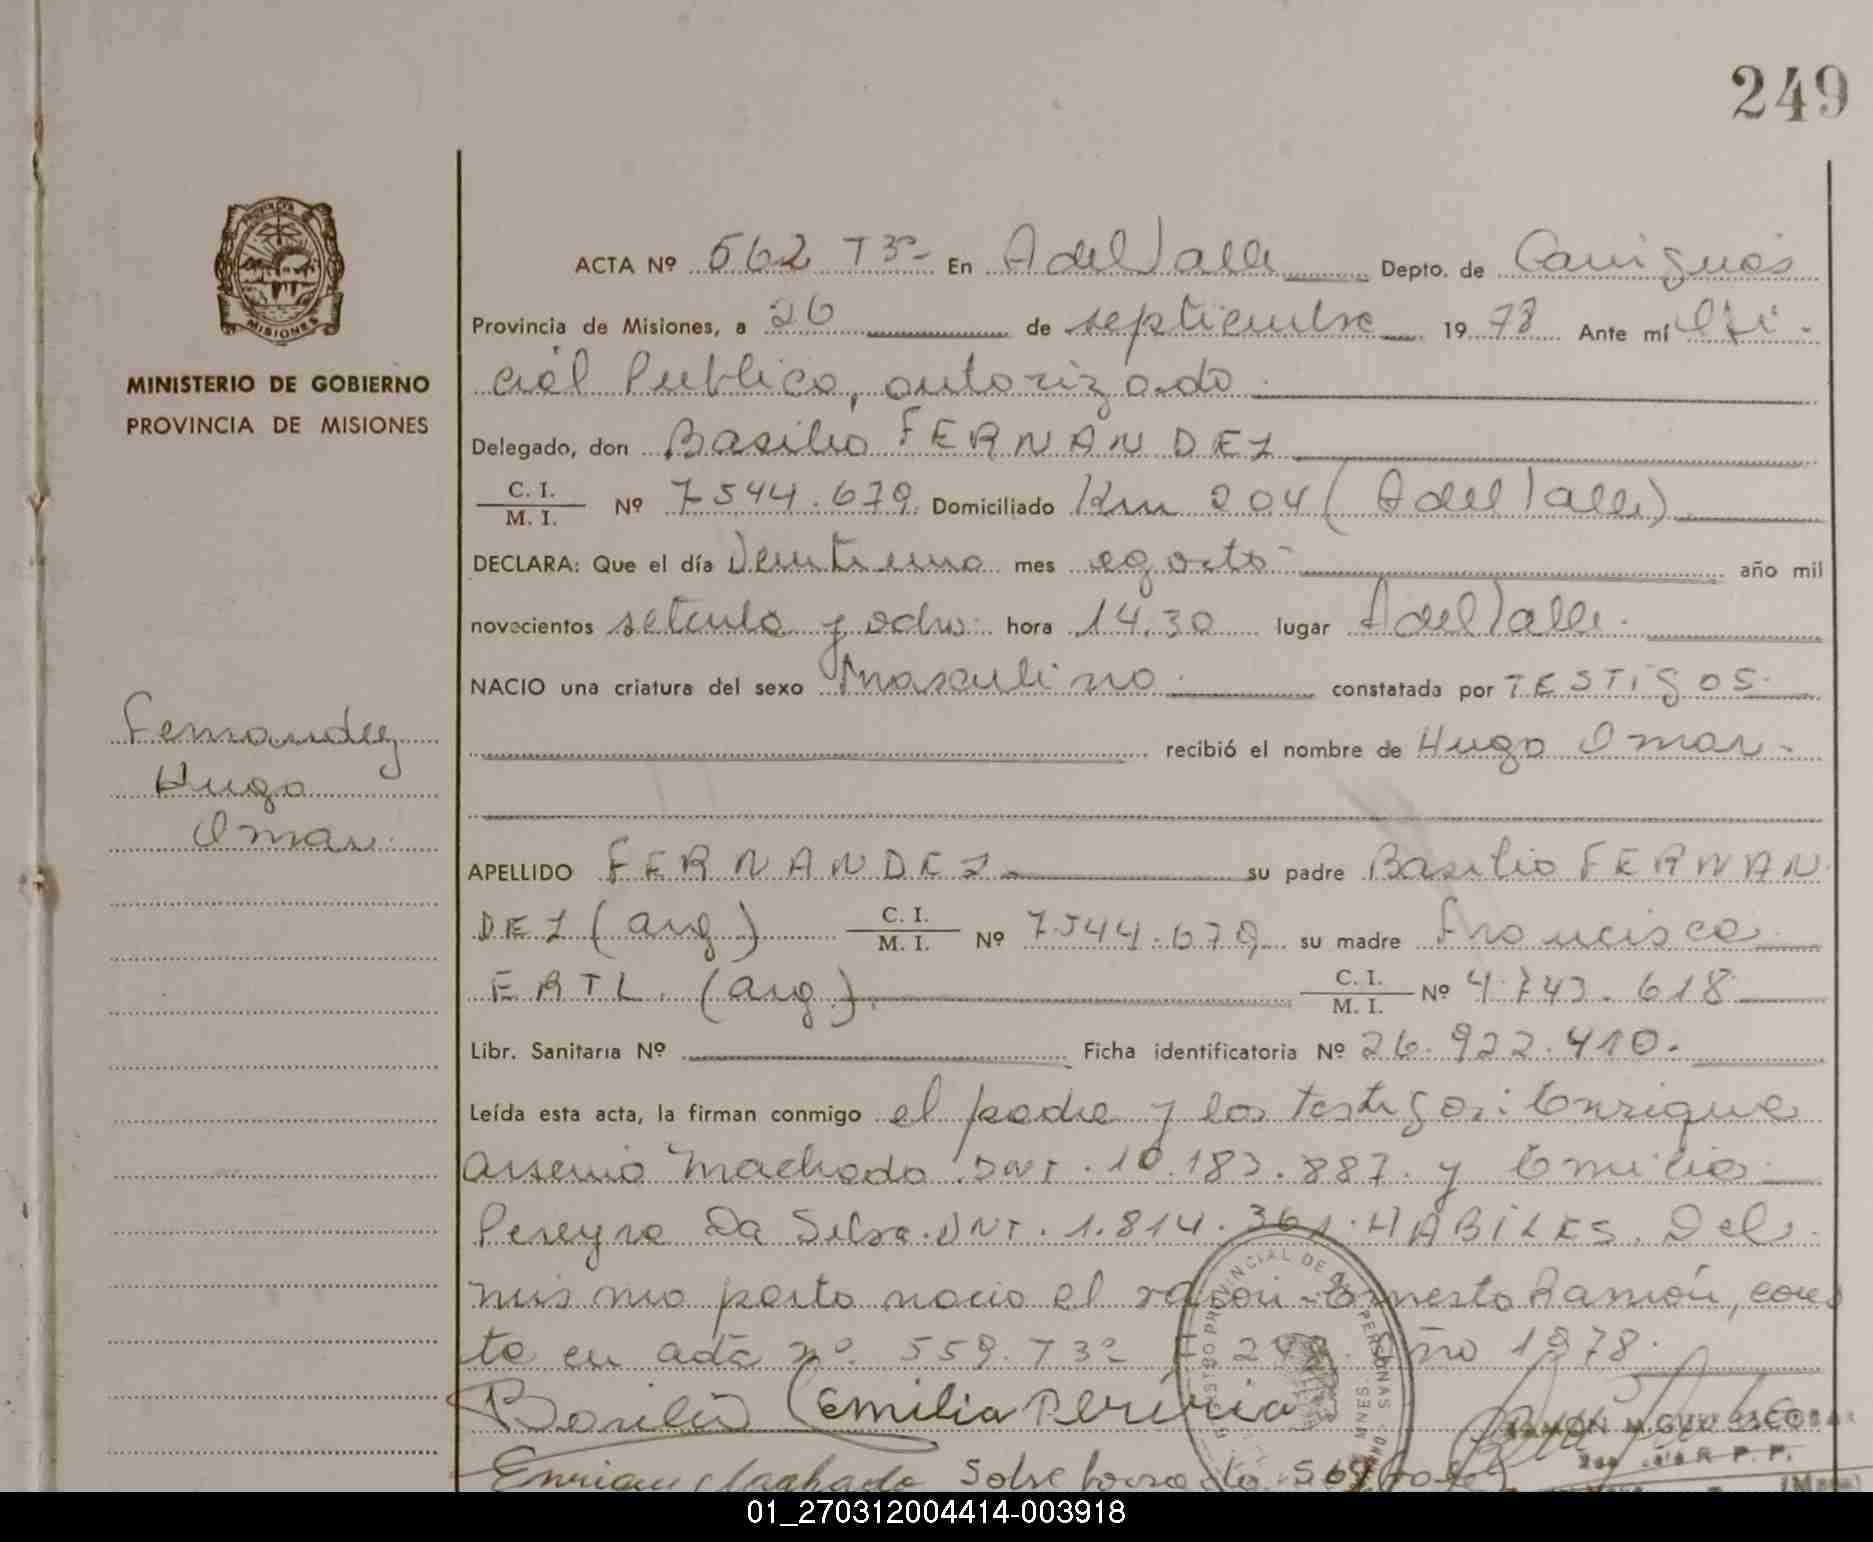 249
PROVINCIA DE
MISIONES
MINISTERIO DE GOBIERNO
PROVINCIA DE MISIONES
Fernandez
Hugo
Omar.
ACTA Nº 562 T3º En A del Valle Depto. de Cainguás
Provincia de Misiones, a 26 de septiembre 1978 Ante mí Ofi-
cial Publico, autorizado.
Delegado, don Basilio FERNANDEZ
C. I. / M. I. Nº 7544.679. Domiciliado Km 204 (A del Valle).
DECLARA: Que el día Veintiuno mes agosto año mil
novecientos setenta y ocho hora 14.30 lugar A del Valle.
NACIO una criatura del sexo Masculino. constatada por TESTIGOS.
recibió el nombre de Hugo Omar.
APELLIDO FERNANDEZ su padre Basilio FERNAN
DEZ (arg.) C. I. / M. I. Nº 7.544.679 su madre Francisca
ERTL. (arg.). C. I. / M. I. Nº 4.743.618
Libr. Sanitaria Nº Ficha identificatoria Nº 26.922.410.
Leída esta acta, la firman conmigo el padre y los testigos: Enrique
Arsenio Machado. DNI. 10.183.887. y Emilia
Pereyra Da Silva. DNI. 1.814.361. HABILES. Del
mismo parto nacio el varon Ernesto Ramón, cons
ta en acta nº. 559. T3º Año 1978.
REGISTRO PROVINCIAL DE PERSONAS
Basilio Emilia Pereira
RAMON MIGUEL ESCOBAR
R. P. P.
Enrique Machado Sobre borrado
(Mnes)
01_270312004414-003918